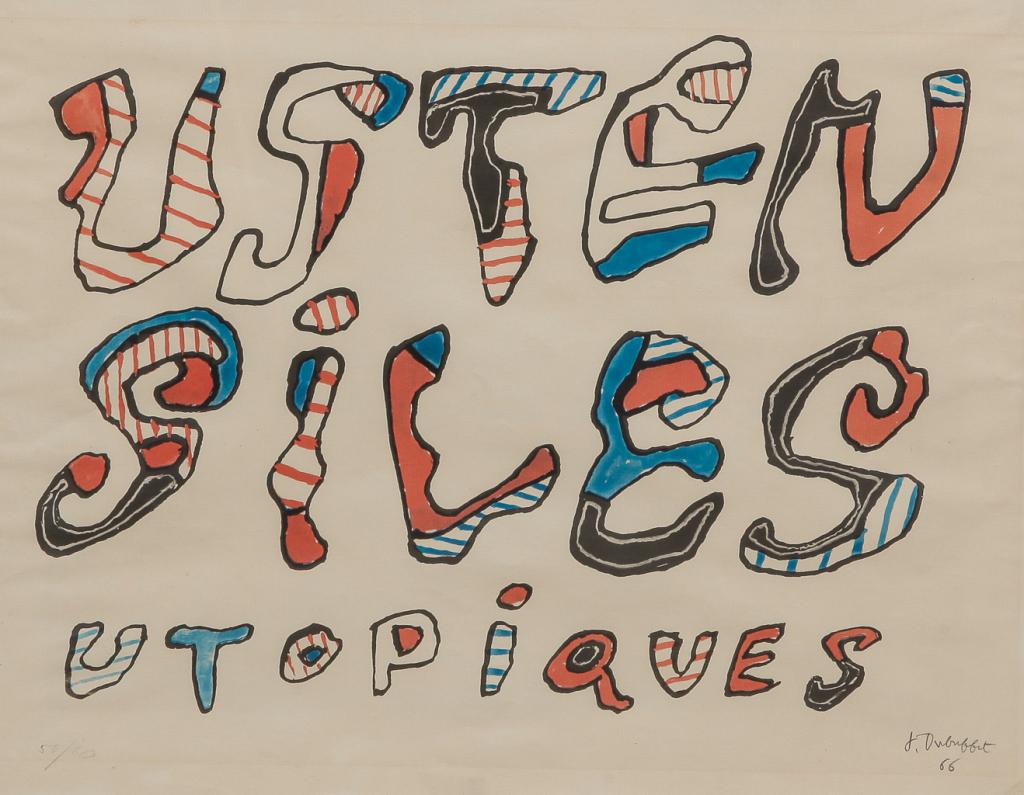 USTEN
SiLES
UTOPiQUES
J. Dubuffet
66